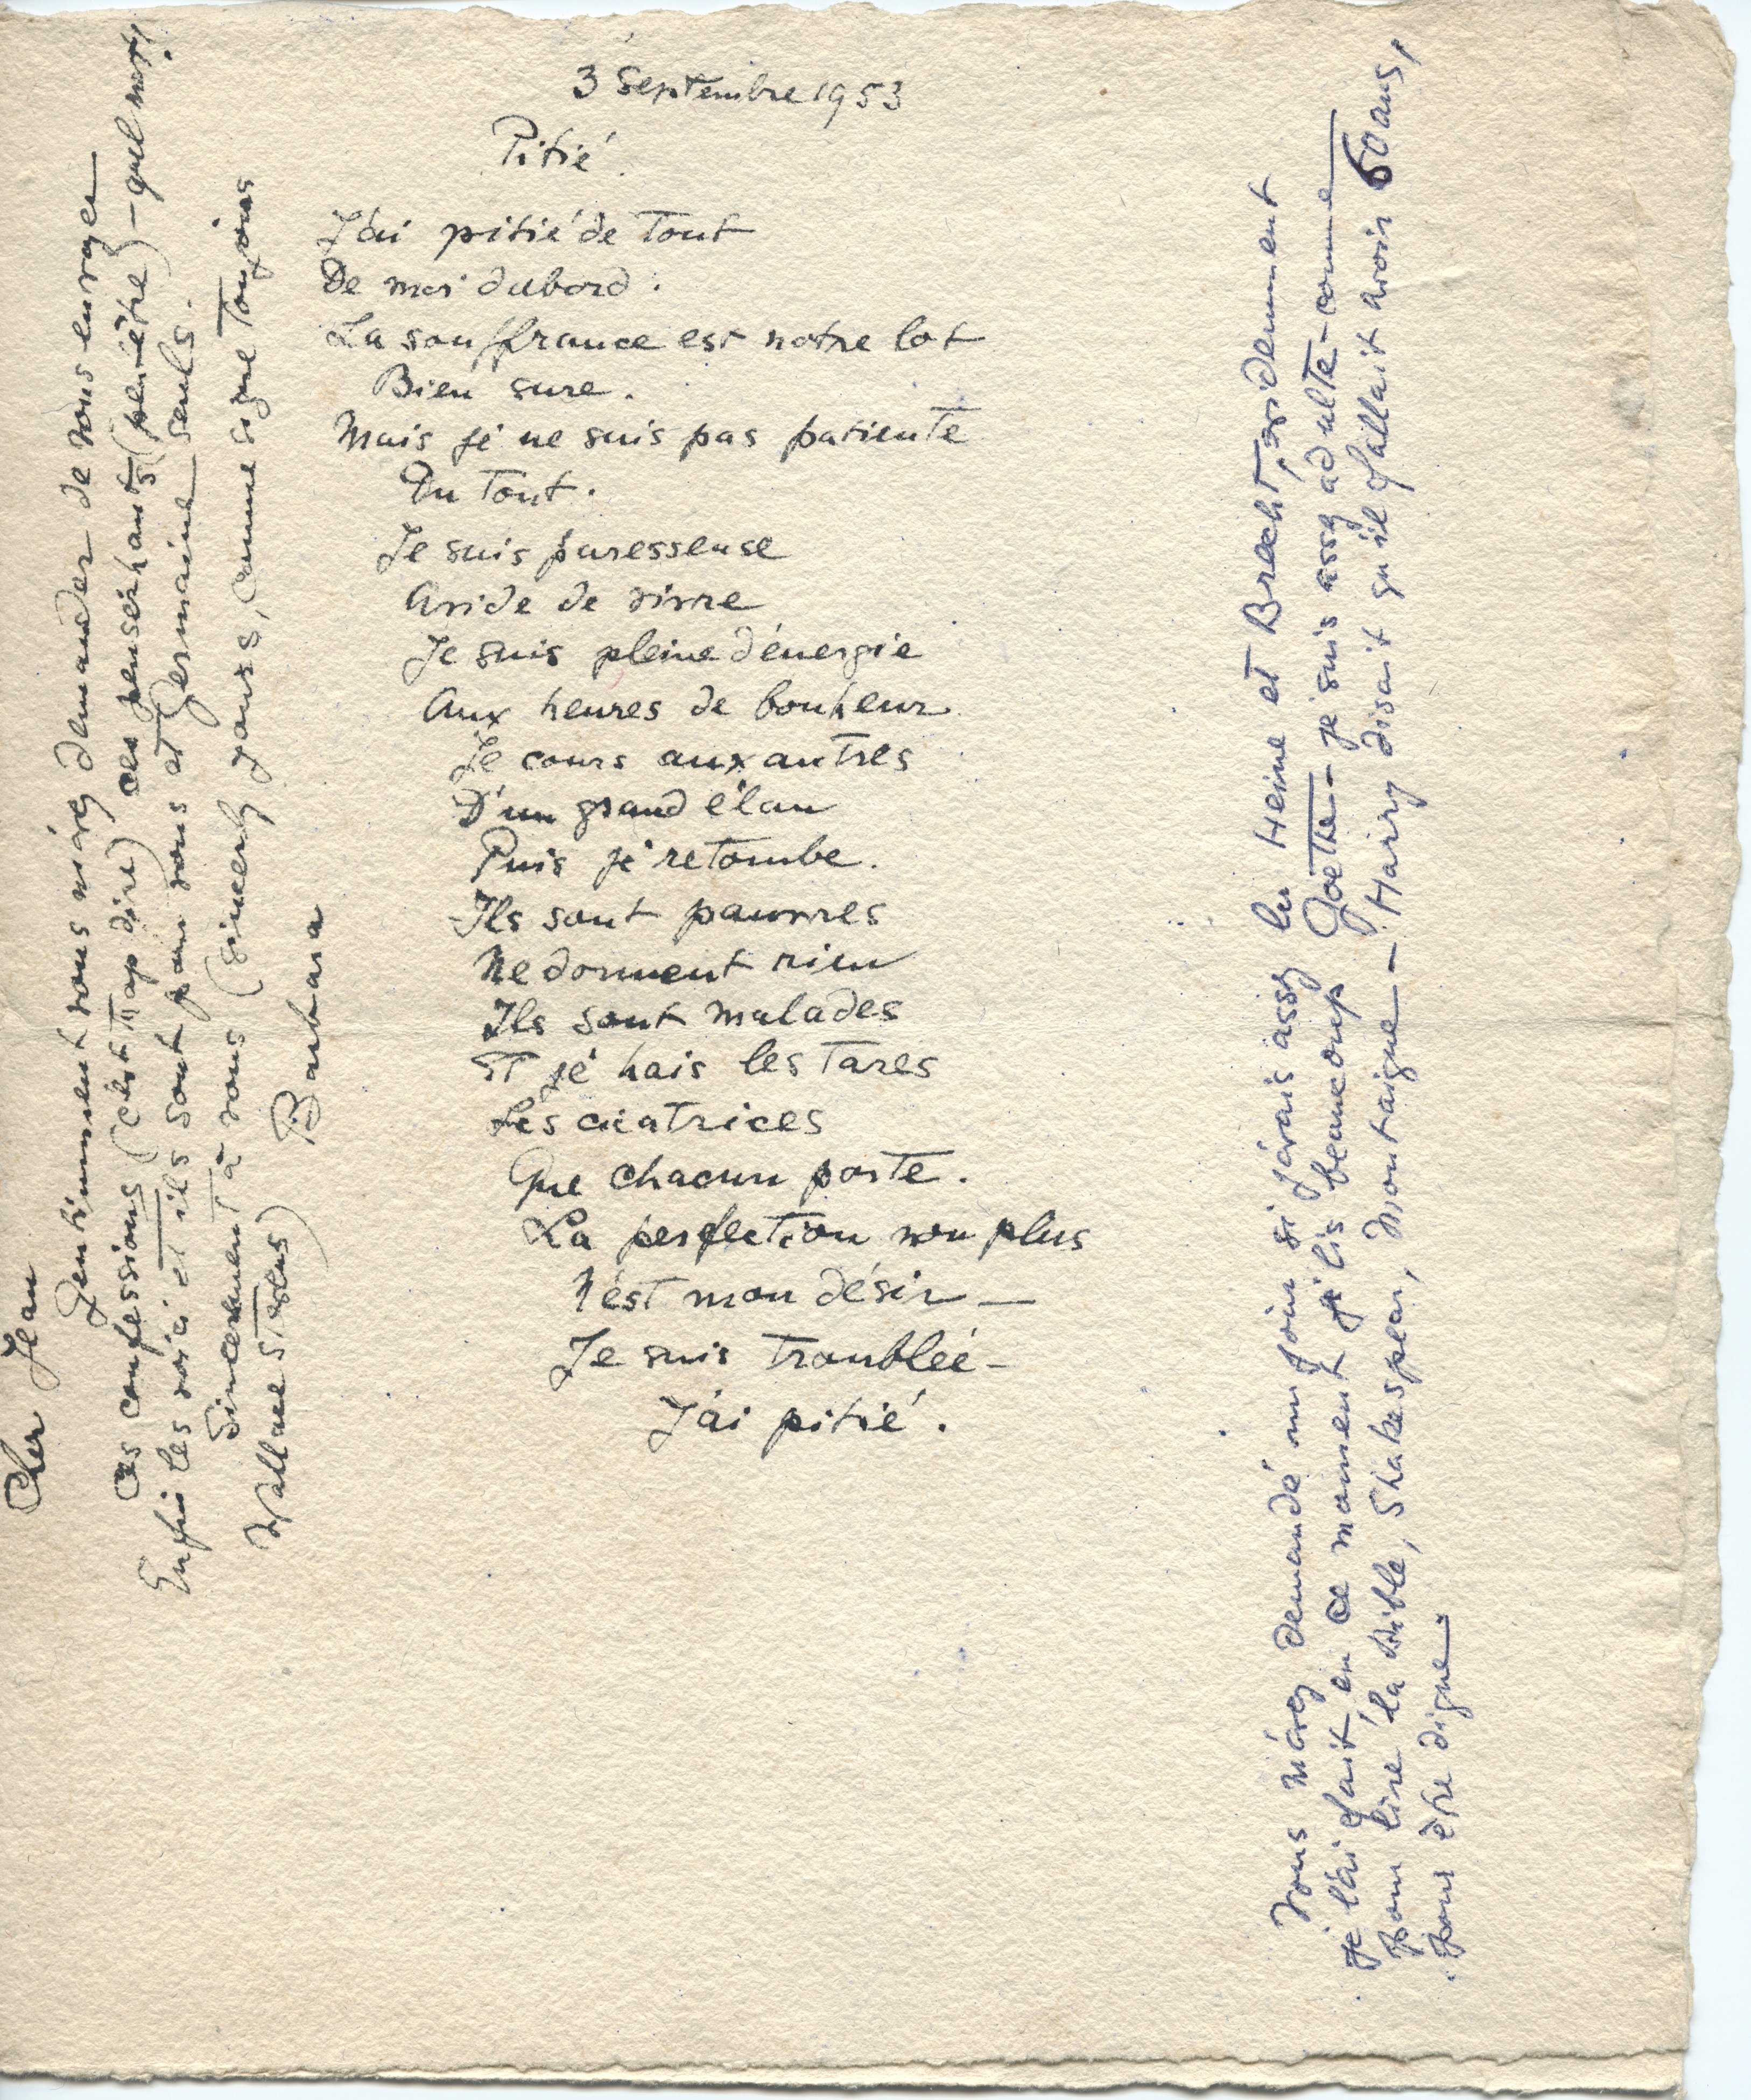 3 Septembre 1953
Pitié
J'ai pitié de tout
De moi dabord.
La souffrance est notre lot
Bien sure.
Mais je ne suis pas patiente
Du tout.
Je suis paresseuse
Avide de vivre
Je suis pleine d'énergie
Aux heures de bonheur
Je cours aux autres
D'un grand élan
Puis je retombe.
Ils sont pauvres
Ne donnent rien
Ils sont malades
Et je hais les tares
Les cicatrices
Que chacun porte.
La perfection non plus
N'est mon désir —
Je suis troublée —
J'ai pitié.
Cher Jean
Gentiment vous m'avez demander de vous envoyer
ces confessions (c'est trop dire) ces pensées (peut être) – quel mot!
Enfin les voici et ils sont pour vous et Germaine seuls.
Sincerement à vous (sincerely yours, comme signe toujours
Wallace Stevens)
Barbara
Vous m'avez demandé un jour si j'avais assez lu Heine et Brecht, évidemment
je l'ai fait, en ce moment je lis beaucoup Goethe – je suis assez adulte – comme
pour lire la Bible, Shakespear, Montaigne – Harry disait qu'il fallait avoir 60 ans,
pour être digne.